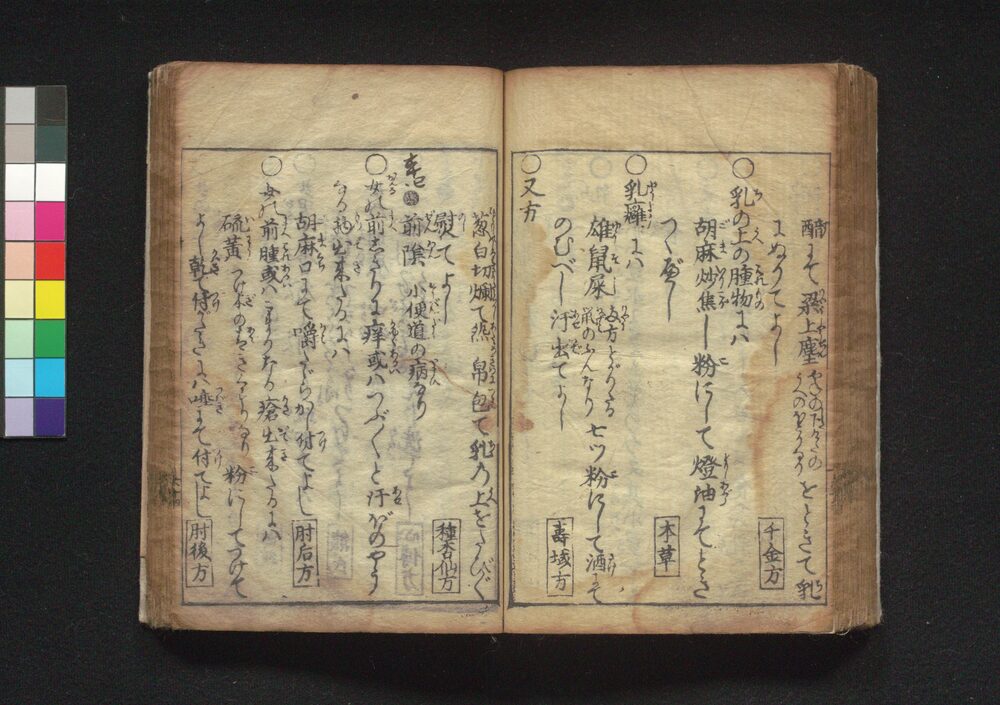 醋にて梁上塵をときて乳
にぬりてよし
千金方
〇乳の上の腫物には
胡麻炒焦し粉にして燈油にてとき
つくべし
本草
〇乳癰には
雄鼠屎 七ツ粉にして酒にて
のむべし汗出てよし
壽域方
〇又方
葱白切爛て 帛包て乳の上をたびたび
熨てよし
種杏仙方
前陰 小便道の病なり
〇女の前 痒或はつぶつぶと汗 のやう
なる物出来たるには
胡麻口にて嚼 付てよし
肘后方
〇女の前腫或は なる瘡出来たるには
硫黄 粉にしてつけて
よし乾て付 には唾にて付てよし
肘後方